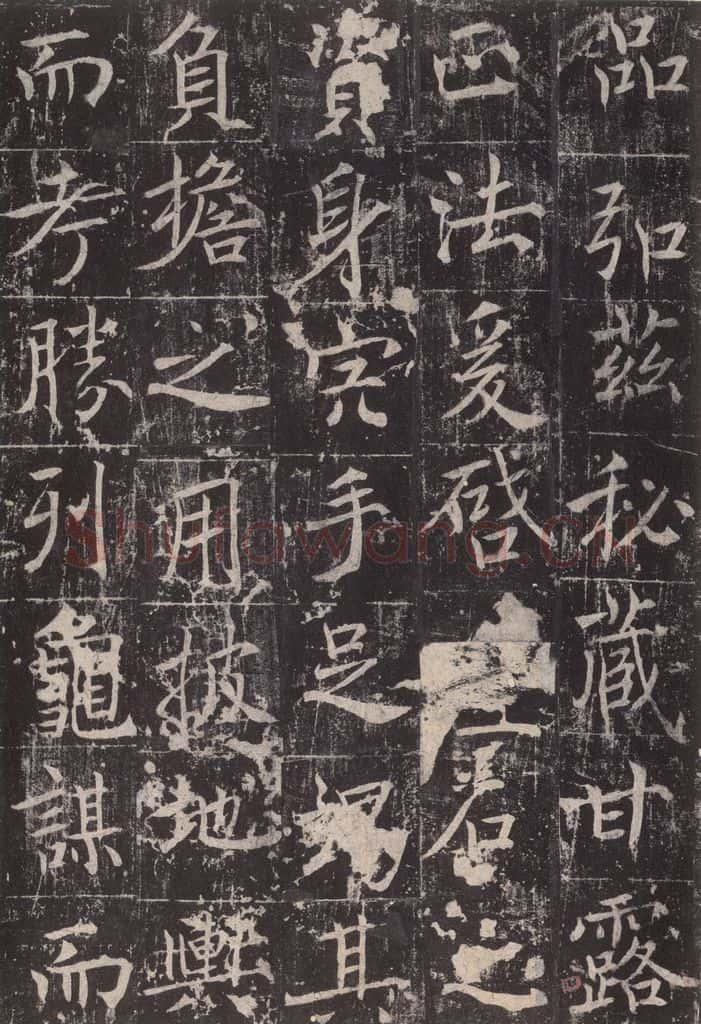 品弘茲秘藏甘露
正法爰啓之
資身宍手足竭其
負擔之用披地輿
而考勝列龜謀而
Shufawang.CN